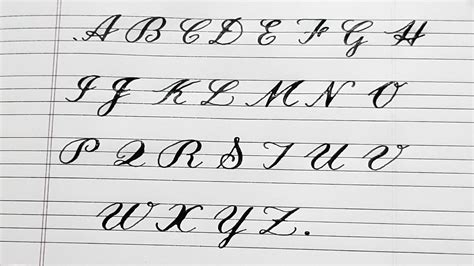 .A B C D E F G H
I J K L M N O
P Q R S T U V
W X Y Z.